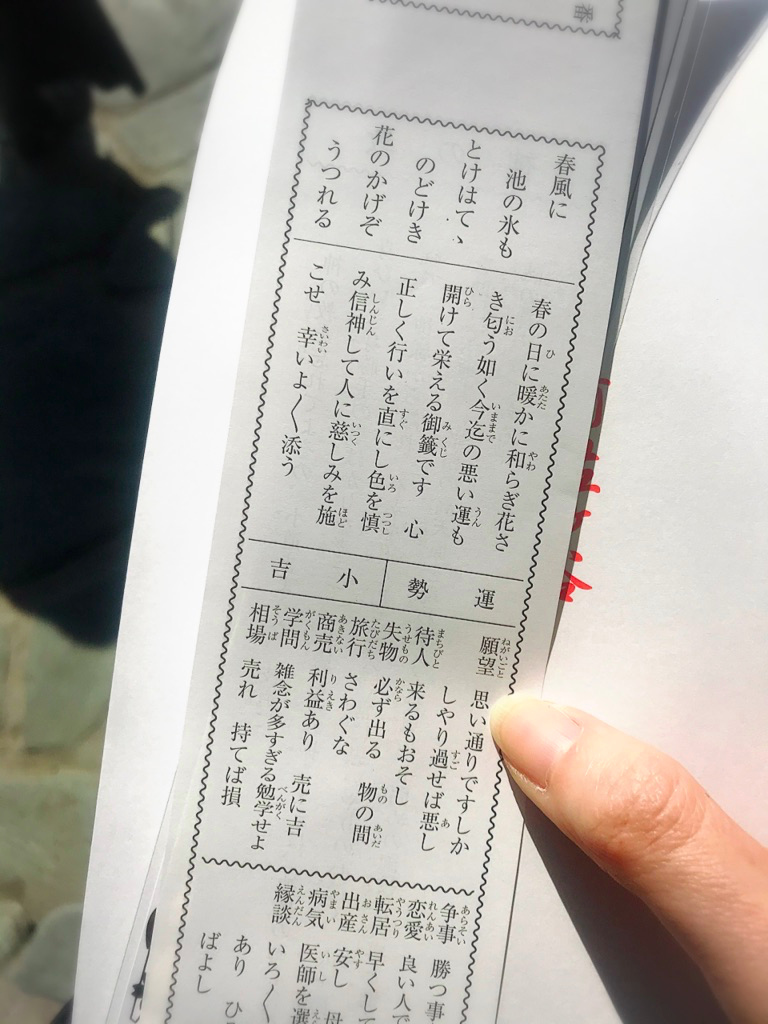 番
春風に
池の氷も
とけはてゝ
のどけき
花のかげぞ
うつれる
春の日に暖かに和らぎ花さ
き匂う如く今迄の悪い運も
開けて栄える御籤です　心
正しく行いを直にし色を慎
み信神して人に慈しみを施
こせ　幸いよ〱添う
運勢
小吉
願望　思い通りですしか
しやり過せば悪し
待人　来るもおそし
失物　必ず出る　物の間
旅行　さわぐな
商売　利益あり　売に吉
学問　雑念が多すぎる勉学せよ
相場　売れ　持てば損
争事　勝つ事
恋愛　良い人で
転居　早くして
出産　安し　母
病気　医師を選
縁談　いろ〱
あり　ひ
ばよし